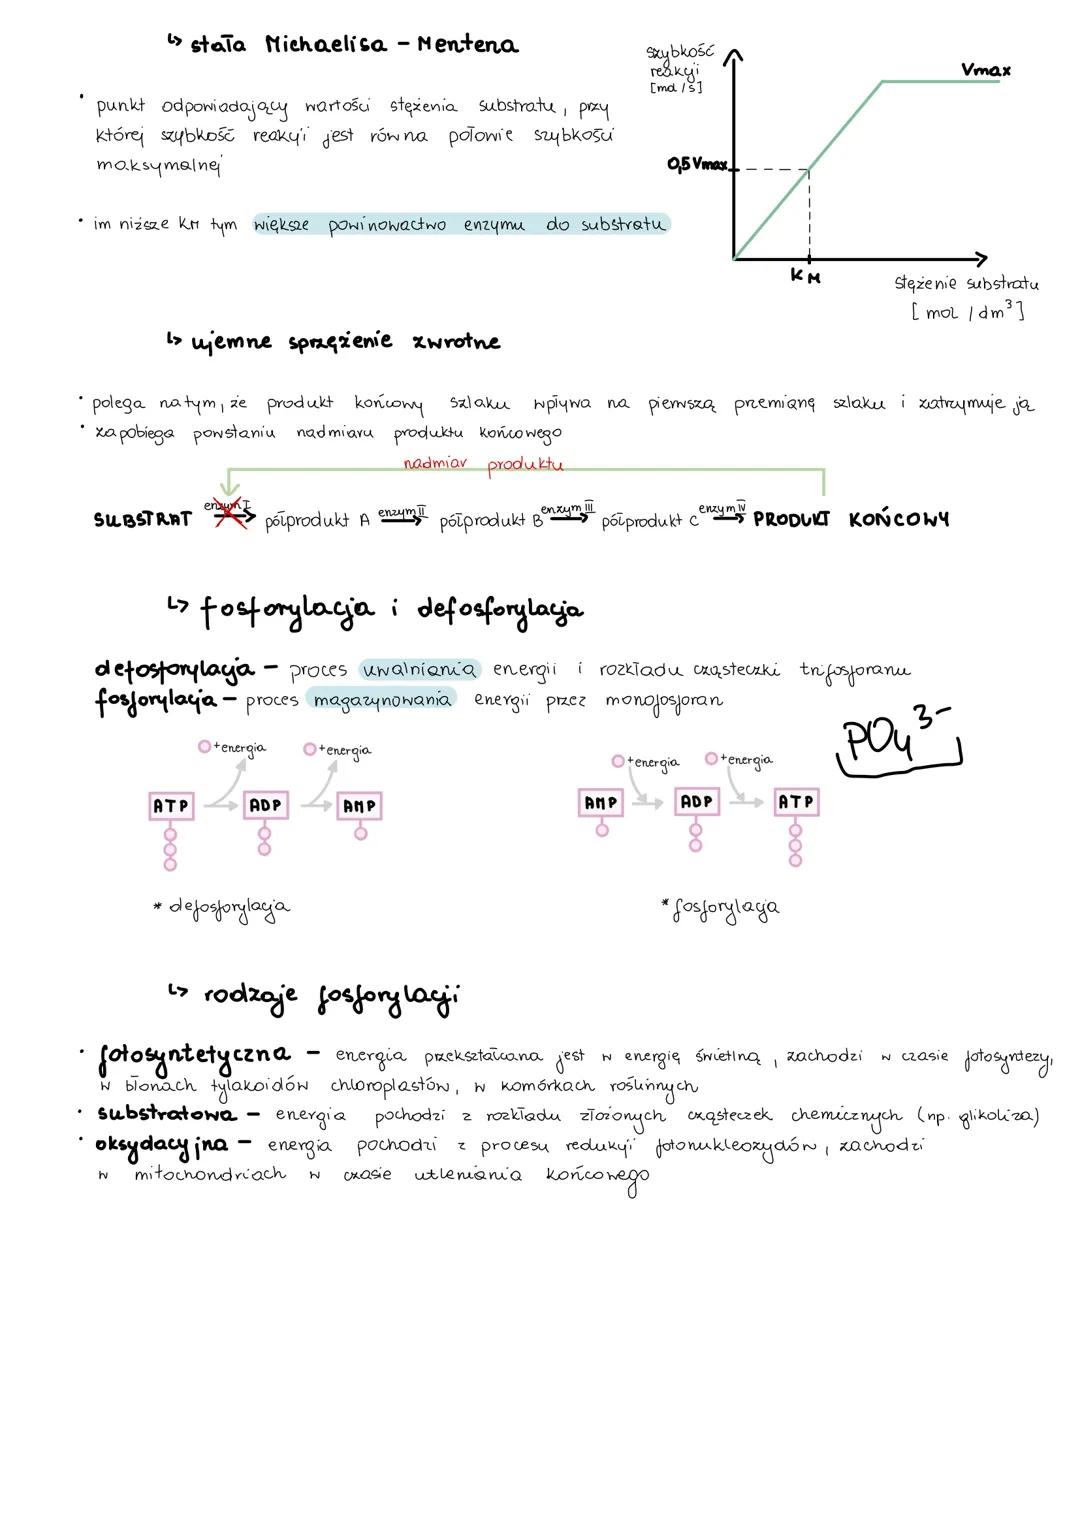 ↳ stała Michaelisa - Mentena
szybkość
reakcji
[mol / s]
Vmax
• punkt odpowiadający wartości stężenia substratu, przy
której szybkość reakcji jest równa połowie szybkości
maksymalnej
0,5 Vmax
• im niższe KM tym większe powinowactwo enzymu do substratu
KM
stężenie substratu
[ mol / dm³ ]
↳ ujemne sprzężenie zwrotne
• polega na tym, że produkt końcowy szlaku wpływa na pierwszą przemianę szlaku i zatrzymuje ją
• zapobiega powstaniu nadmiaru produktu końcowego
nadmiar produktu
SUBSTRAT enzym I → półprodukt A enzym II → półprodukt B enzym III → półprodukt C enzym IV → PRODUKT KOŃCOWY
↳ fosforylacja i defosforylacja
defosforylacja - proces uwalniania energii i rozkładu cząsteczki trifosforanu
fosforylacja - proces magazynowania energii przez monofosforan
PO₄³⁻
+energia +energia
+energia +energia
ATP ADP AMP
AMP ADP ATP
* defosforylacja
* fosforylacja
↳ rodzaje fosforylacji
• fotosyntetyczna - energia przekształcana jest w energię świetlną, zachodzi w czasie fotosyntezy,
w błonach tylakoidów chloroplastów, w komórkach roślinnych
• substratowa - energia pochodzi z rozkładu złożonych cząsteczek chemicznych (np. glikoliza)
• oksydacyjna - energia pochodzi z procesu redukcji fotonukleozydów, zachodzi
w mitochondriach w czasie utleniania końcowego